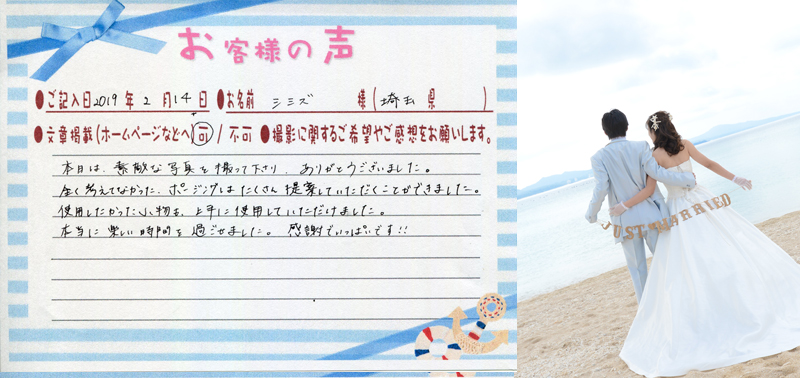 お客様の声
●ご記入日2019年2月14日 ●お名前 シミズ 様(埼玉県 )
●文章掲載(ホームページなどへ) 可 / 不可 ●撮影に関するご希望やご感想をお願いします。
本日は、素敵な写真を撮って下さり、ありがとうございました。
全く考えてなかった、ポージングはたくさん提案していただくことができました。
使用したかった小物も、上手に使用していただけました。
本当に楽しい時間を過ごせました。 感謝でいっぱいです!!
JUST MARRIED